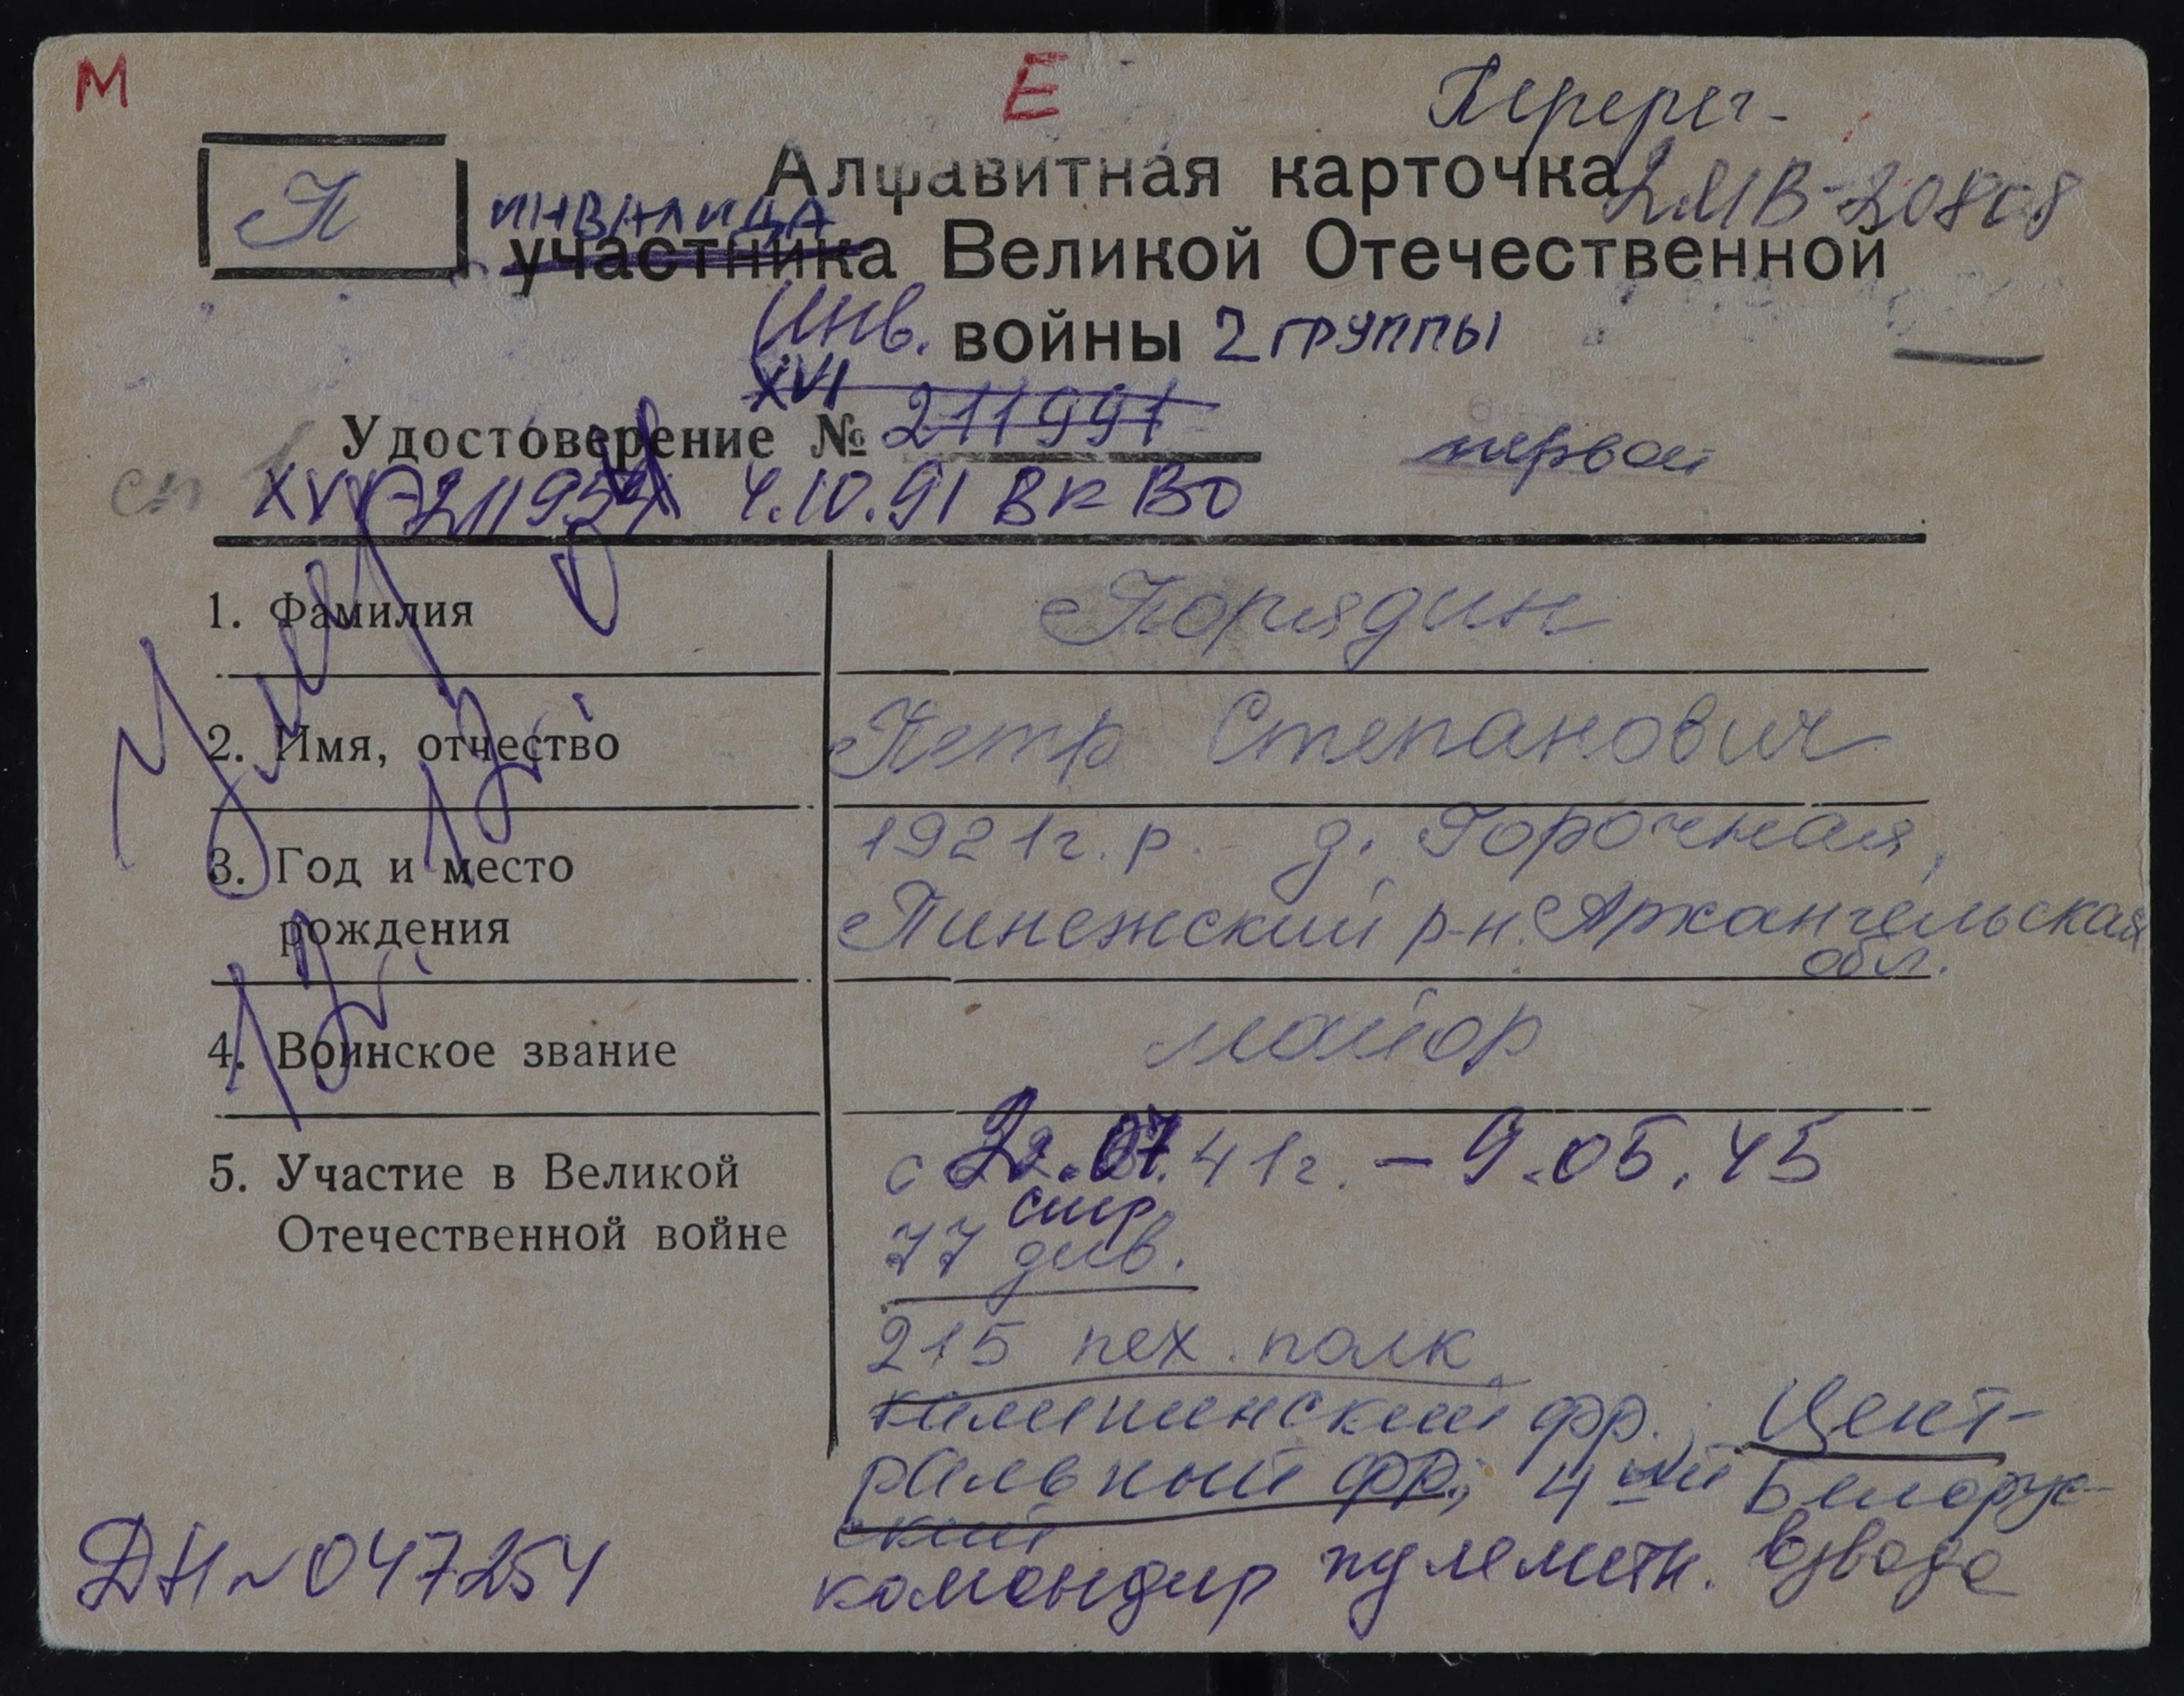 М Е Перерег-
П Алфавитная карточка 2МВ-20808
ИНВАЛИДА
участника Великой Отечественной
Инв. войны 2 ГРУППЫ
XVI
Удостоверение № 211991 первой
сп 4.10.91 ВК ВО
Умер
1. Фамилия Порядин
2. Имя, отчество Петр Степанович
3. Год и место 1921г.р. д. Горочная,
рождения Пинежский р-н. Архангельская
обл.
4. Воинское звание майор
5. Участие в Великой с 41г. – 9.05.45
стр
Отечественной войне 77 див.
215 пех. полк
калининский фр. Цент-
ральный фр., Белорус-
ский
ДН № 047254 командир пулеметн. взвода